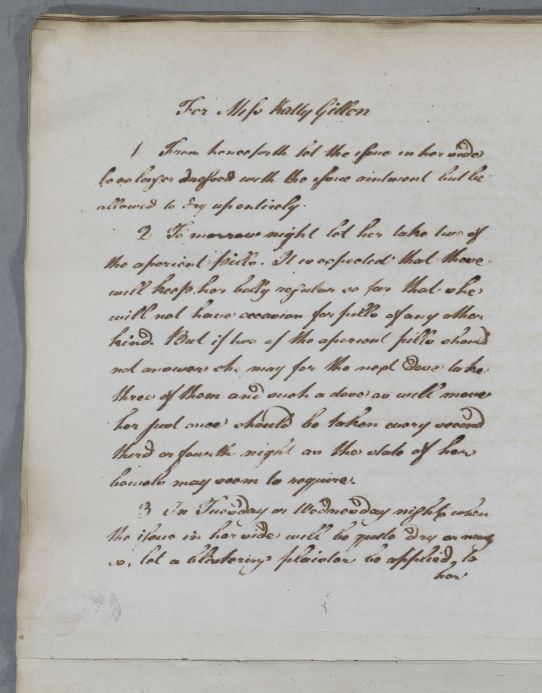 For Miss Katty Gillon
1 From henceforth let the issue in her side
be no longer dressed with the issue ointment but be
allowed to dry up entirely.
2 To morrow night let her take two of
the aperient pills. It is expected that these
will keep her belly regular so far that she
will not have occasion for pills of any other
kind. But if two of the aperient pills should
not answer she may for the next dose take
three of them and such a dose as will move
her just once should be taken every second
third or fourth night as the state of her
bowels may seem to require.
3 On Tuesday or Wednesday night when
the issue in her side will be quite dry or nearly
so, let a blistering plaister be applied to
her